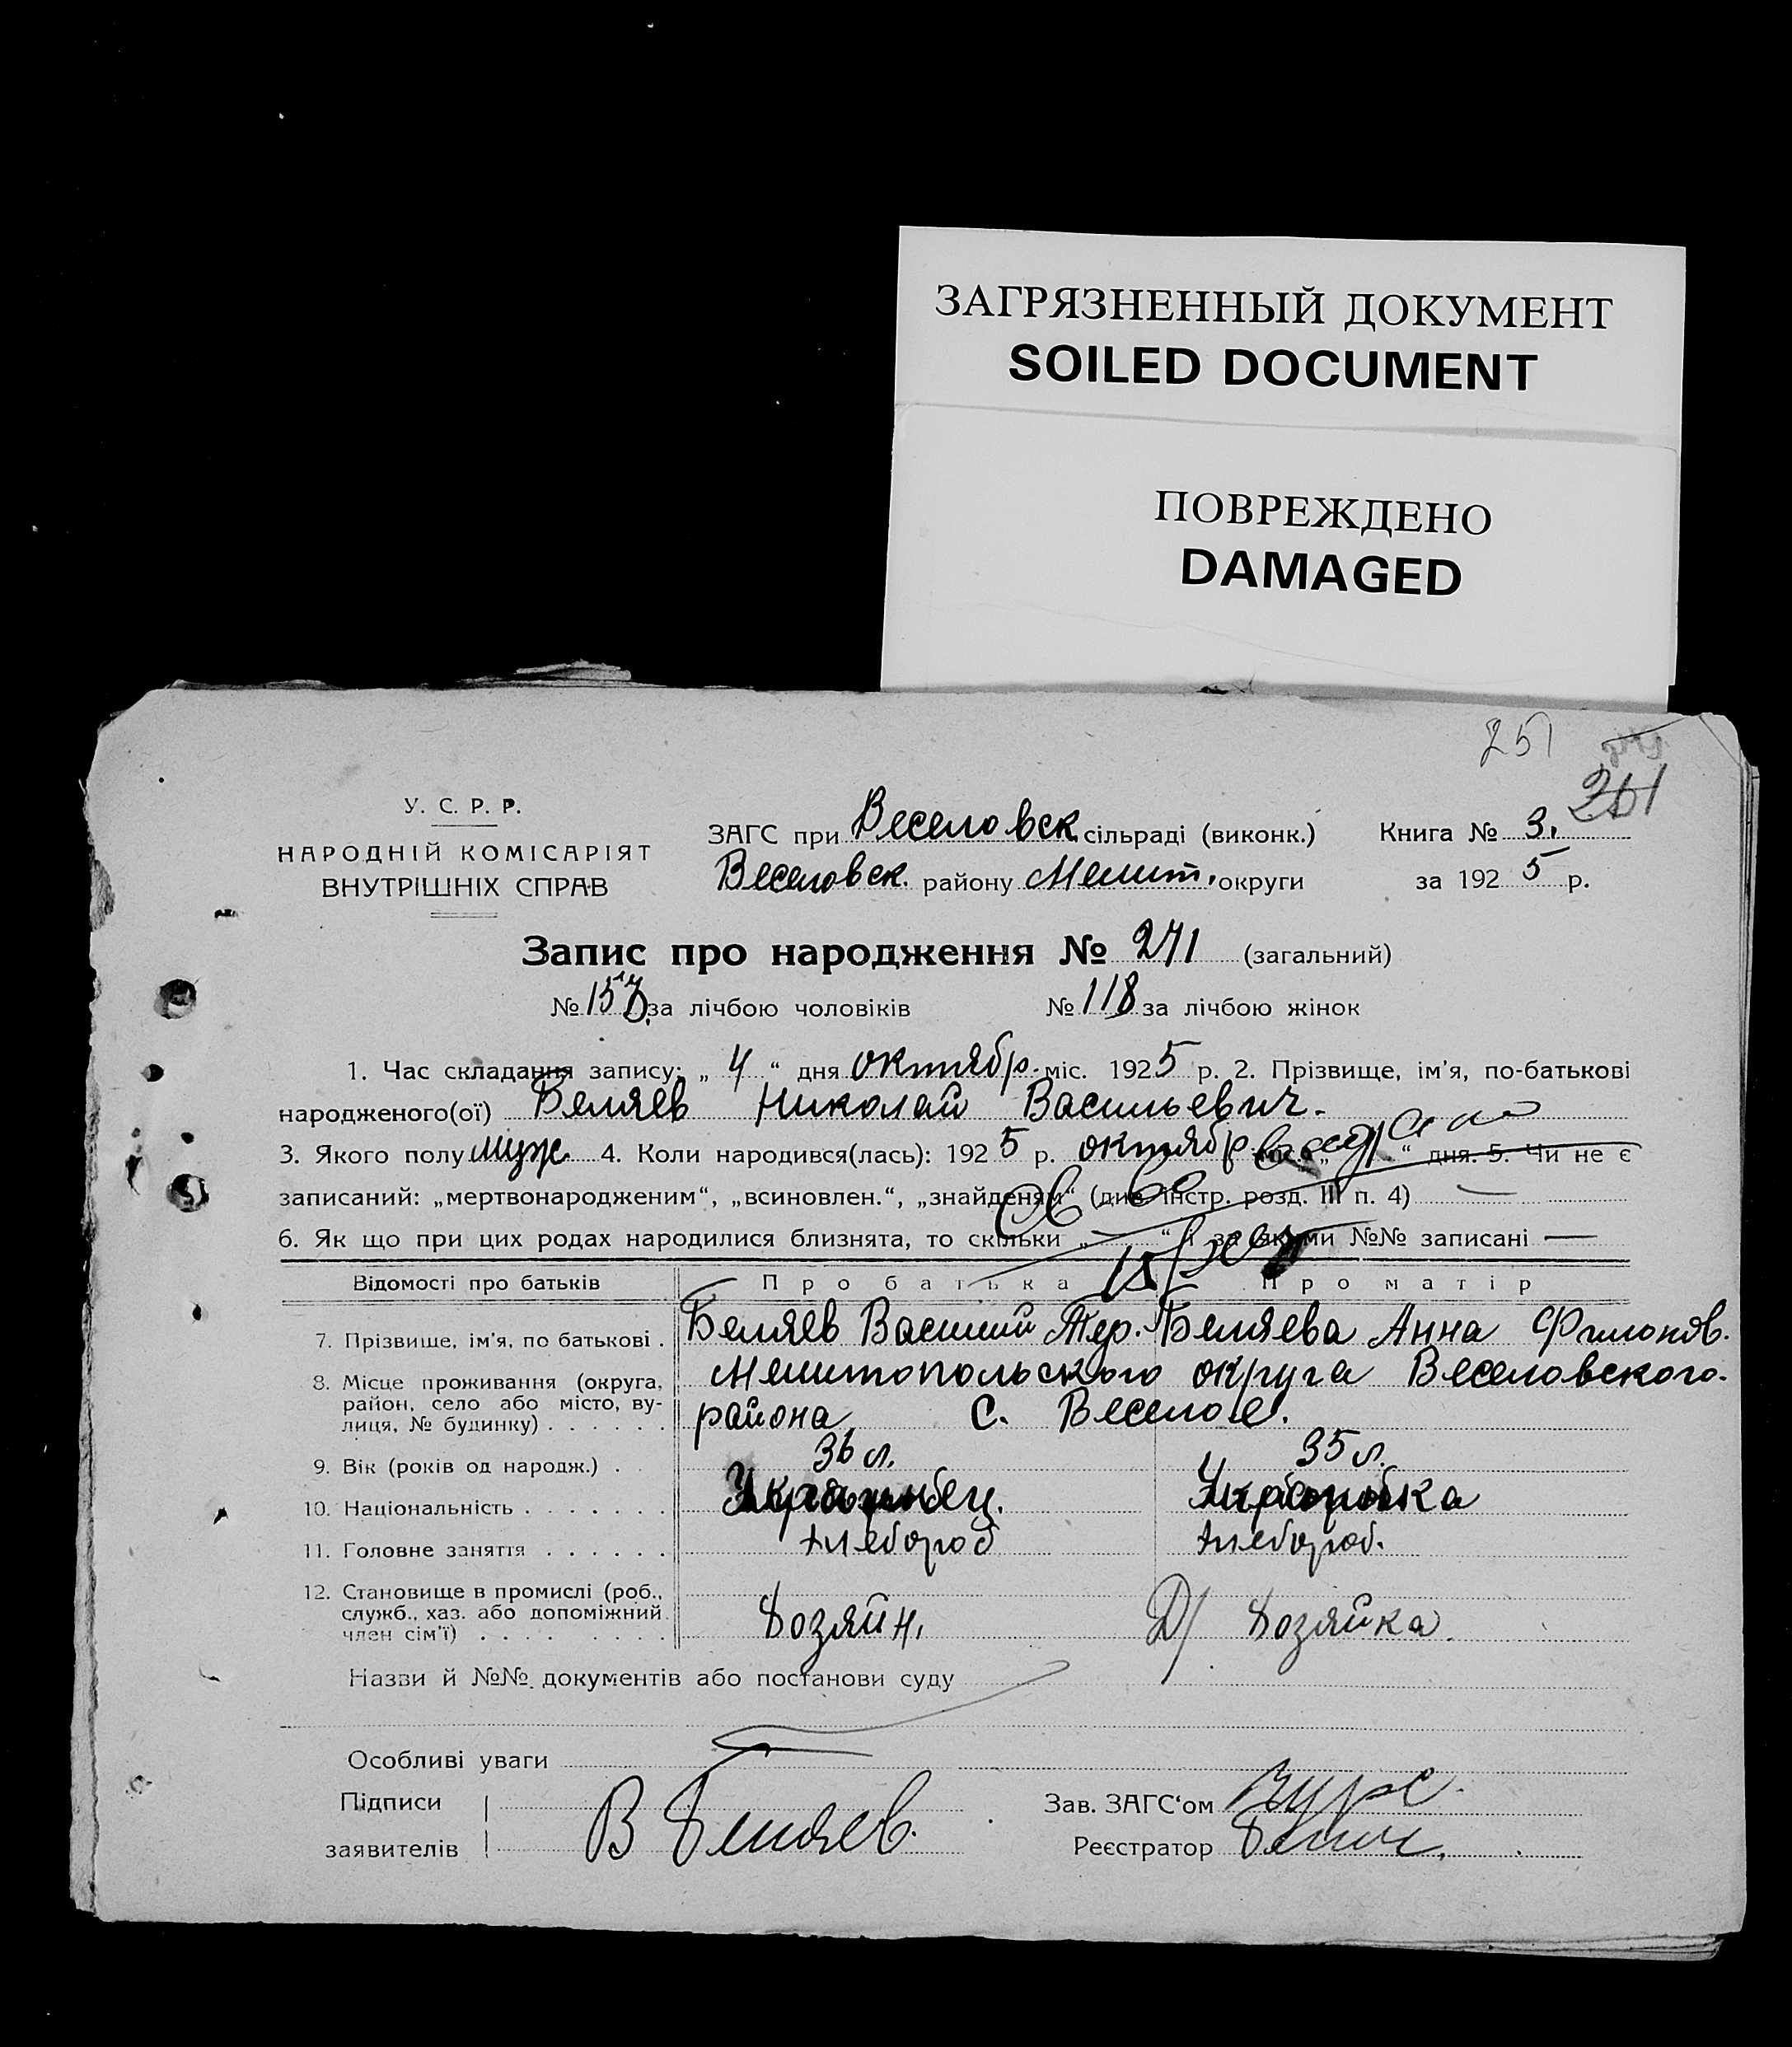 ЗАГРЯЗНЕННЫЙ ДОКУМЕНТ
SOILED DOCUMENT
ПОВРЕЖДЕНО
DAMAGED
251
У. С. Р. Р.
НАРОДНІЙ КОМІСАРІЯТ
ВНУТРІШНІХ СПРАВ
ЗАГС при Веселовск. сільраді (виконк.) Книга № 3.
Веселовск. району Мелит. округи за 1925 р.
Запис про народження № 271 (загальний)
№ 157 за лічбою чоловіків № 118 за лічбою жінок
1. Час складання запису: „4“ дня октябр. міс. 1925 р. 2. Прізвище, ім'я, по-батькові
народженого(ої) Беляев Николай Васильевич.
3. Якого полу муж 4. Коли народився(лась): 1925 р. октябр „ “ дня. 5. Чи не є
записаний: „мертвонародженим“, „всиновлен.“, „знайденям“ (див. інстр. розд. III п. 4) —
6. Як що при цих родах народилися близнята, то скільки „—“ і за якими №№ записані —
Відомості про батьків Про батька Про матір
7. Прізвище, ім'я, по батькові . Беляев Василий Тер. Беляева Анна Филонов.
8. Місце проживання (округа, район, село або місто, вулиця, № будинку) . . . . . . Мелитопольского округа Веселовского.
района с. Веселое.
9. Вік (років од народж.) . 36 л. 35 л.
10. Національність . . . . . . .
11. Головне заняття . . . . . . Хлебороб Хлебороб.
12. Становище в промислі (роб., служб., хаз. або допоміжний член сім'ї) . . . . Хозяин. Д/ Хозяйка.
Назви й №№ документів або постанови суду
Особливі уваги
Підписи
заявителів В Беляев.
Зав. ЗАГС'ом
Реєстратор